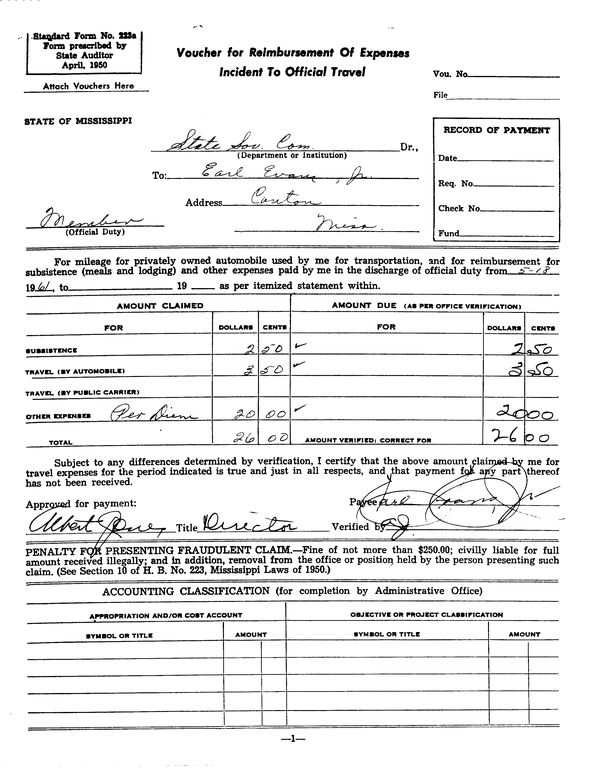 Standard Form No. 223a
Form prescribed by
State Auditor
April, 1950
Attach Vouchers Here
Voucher for Reimbursement Of Expenses
Incident To Official Travel
Vou. No.
File
STATE OF MISSISSIPPI
State Sov. Com. Dr.,
(Department or Institution)
To: Earl Evans, Jr.
Address Canton
Miss.
Member
(Official Duty)
RECORD OF PAYMENT
Date
Req. No.
Check No.
Fund
For mileage for privately owned automobile used by me for transportation, and for reimbursement for
subsistence (meals and lodging) and other expenses paid by me in the discharge of official duty from 5-18
1961, to 19 as per itemized statement within.
AMOUNT CLAIMED AMOUNT DUE (AS PER OFFICE VERIFICATION)
FOR DOLLARS CENTS FOR DOLLARS CENTS
SUBSISTENCE 2 50 ✓ 2.50
TRAVEL (BY AUTOMOBILE) 3 50 ✓ 3.50
TRAVEL (BY PUBLIC CARRIER)
OTHER EXPENSES Per Diem 20 00 ✓ 20 00
TOTAL 26 00 AMOUNT VERIFIED: CORRECT FOR 26 00
Subject to any differences determined by verification, I certify that the above amount claimed by me for
travel expenses for the period indicated is true and just in all respects, and that payment for any part thereof
has not been received.
Approved for payment: Payee Earl Evans Jr
Albert Jones Title Director Verified by
PENALTY FOR PRESENTING FRAUDULENT CLAIM.—Fine of not more than $250.00; civilly liable for full
amount received illegally; and in addition, removal from the office or position held by the person presenting such
claim. (See Section 10 of H. B. No. 223, Mississippi Laws of 1950.)
ACCOUNTING CLASSIFICATION (for completion by Administrative Office)
APPROPRIATION AND/OR COST ACCOUNT OBJECTIVE OR PROJECT CLASSIFICATION
SYMBOL OR TITLE AMOUNT SYMBOL OR TITLE AMOUNT
—1—